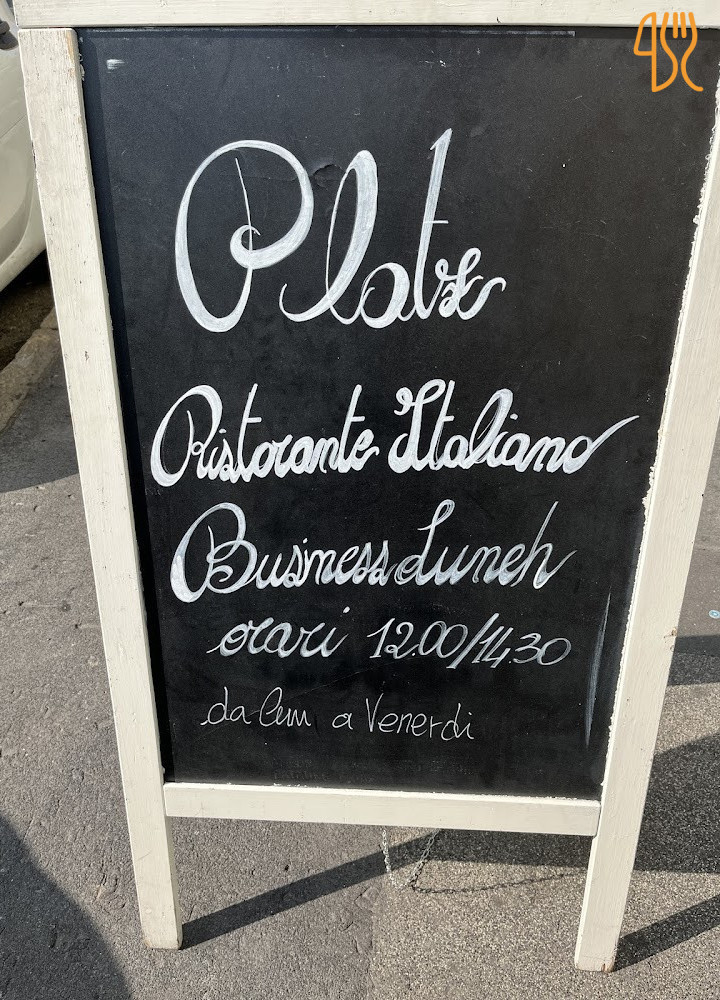 Platz
Ristorante Italiano
Business Lunch
orari 12.00/14.30
da Lun a Venerdi